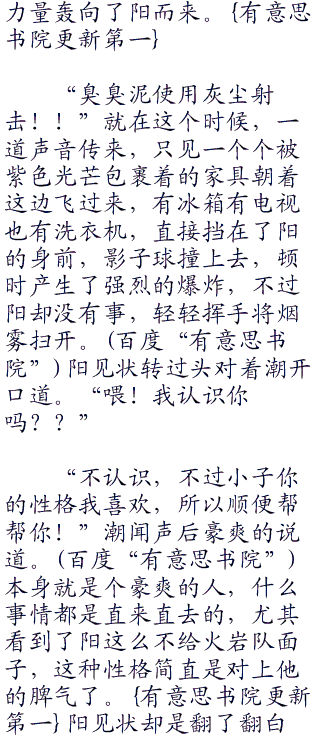 力量轰向了阳而来。{有意思
书院更新第一}
“臭臭泥使用灰尘射
击！！”就在这个时候，一
道声音传来，只见一个个被
紫色光芒包裹着的家具朝着
这边飞过来，有冰箱有电视
也有洗衣机，直接挡在了阳
的身前，影子球撞上去，顿
时产生了强烈的爆炸，不过
阳却没有事，轻轻挥手将烟
雾扫开。(百度“有意思书
院”)阳见状转过头对着潮开
口道。“喂！我认识你
吗？？”
“不认识，不过小子你
的性格我喜欢，所以顺便帮
帮你！”潮闻声后豪爽的说
道。(百度“有意思书院”)
本身就是个豪爽的人，什么
事情都是直来直去的，尤其
看到了阳这么不给火岩队面
子，这种性格简直是对上他
的脾气了。{有意思书院更新
第一}阳见状却是翻了翻白